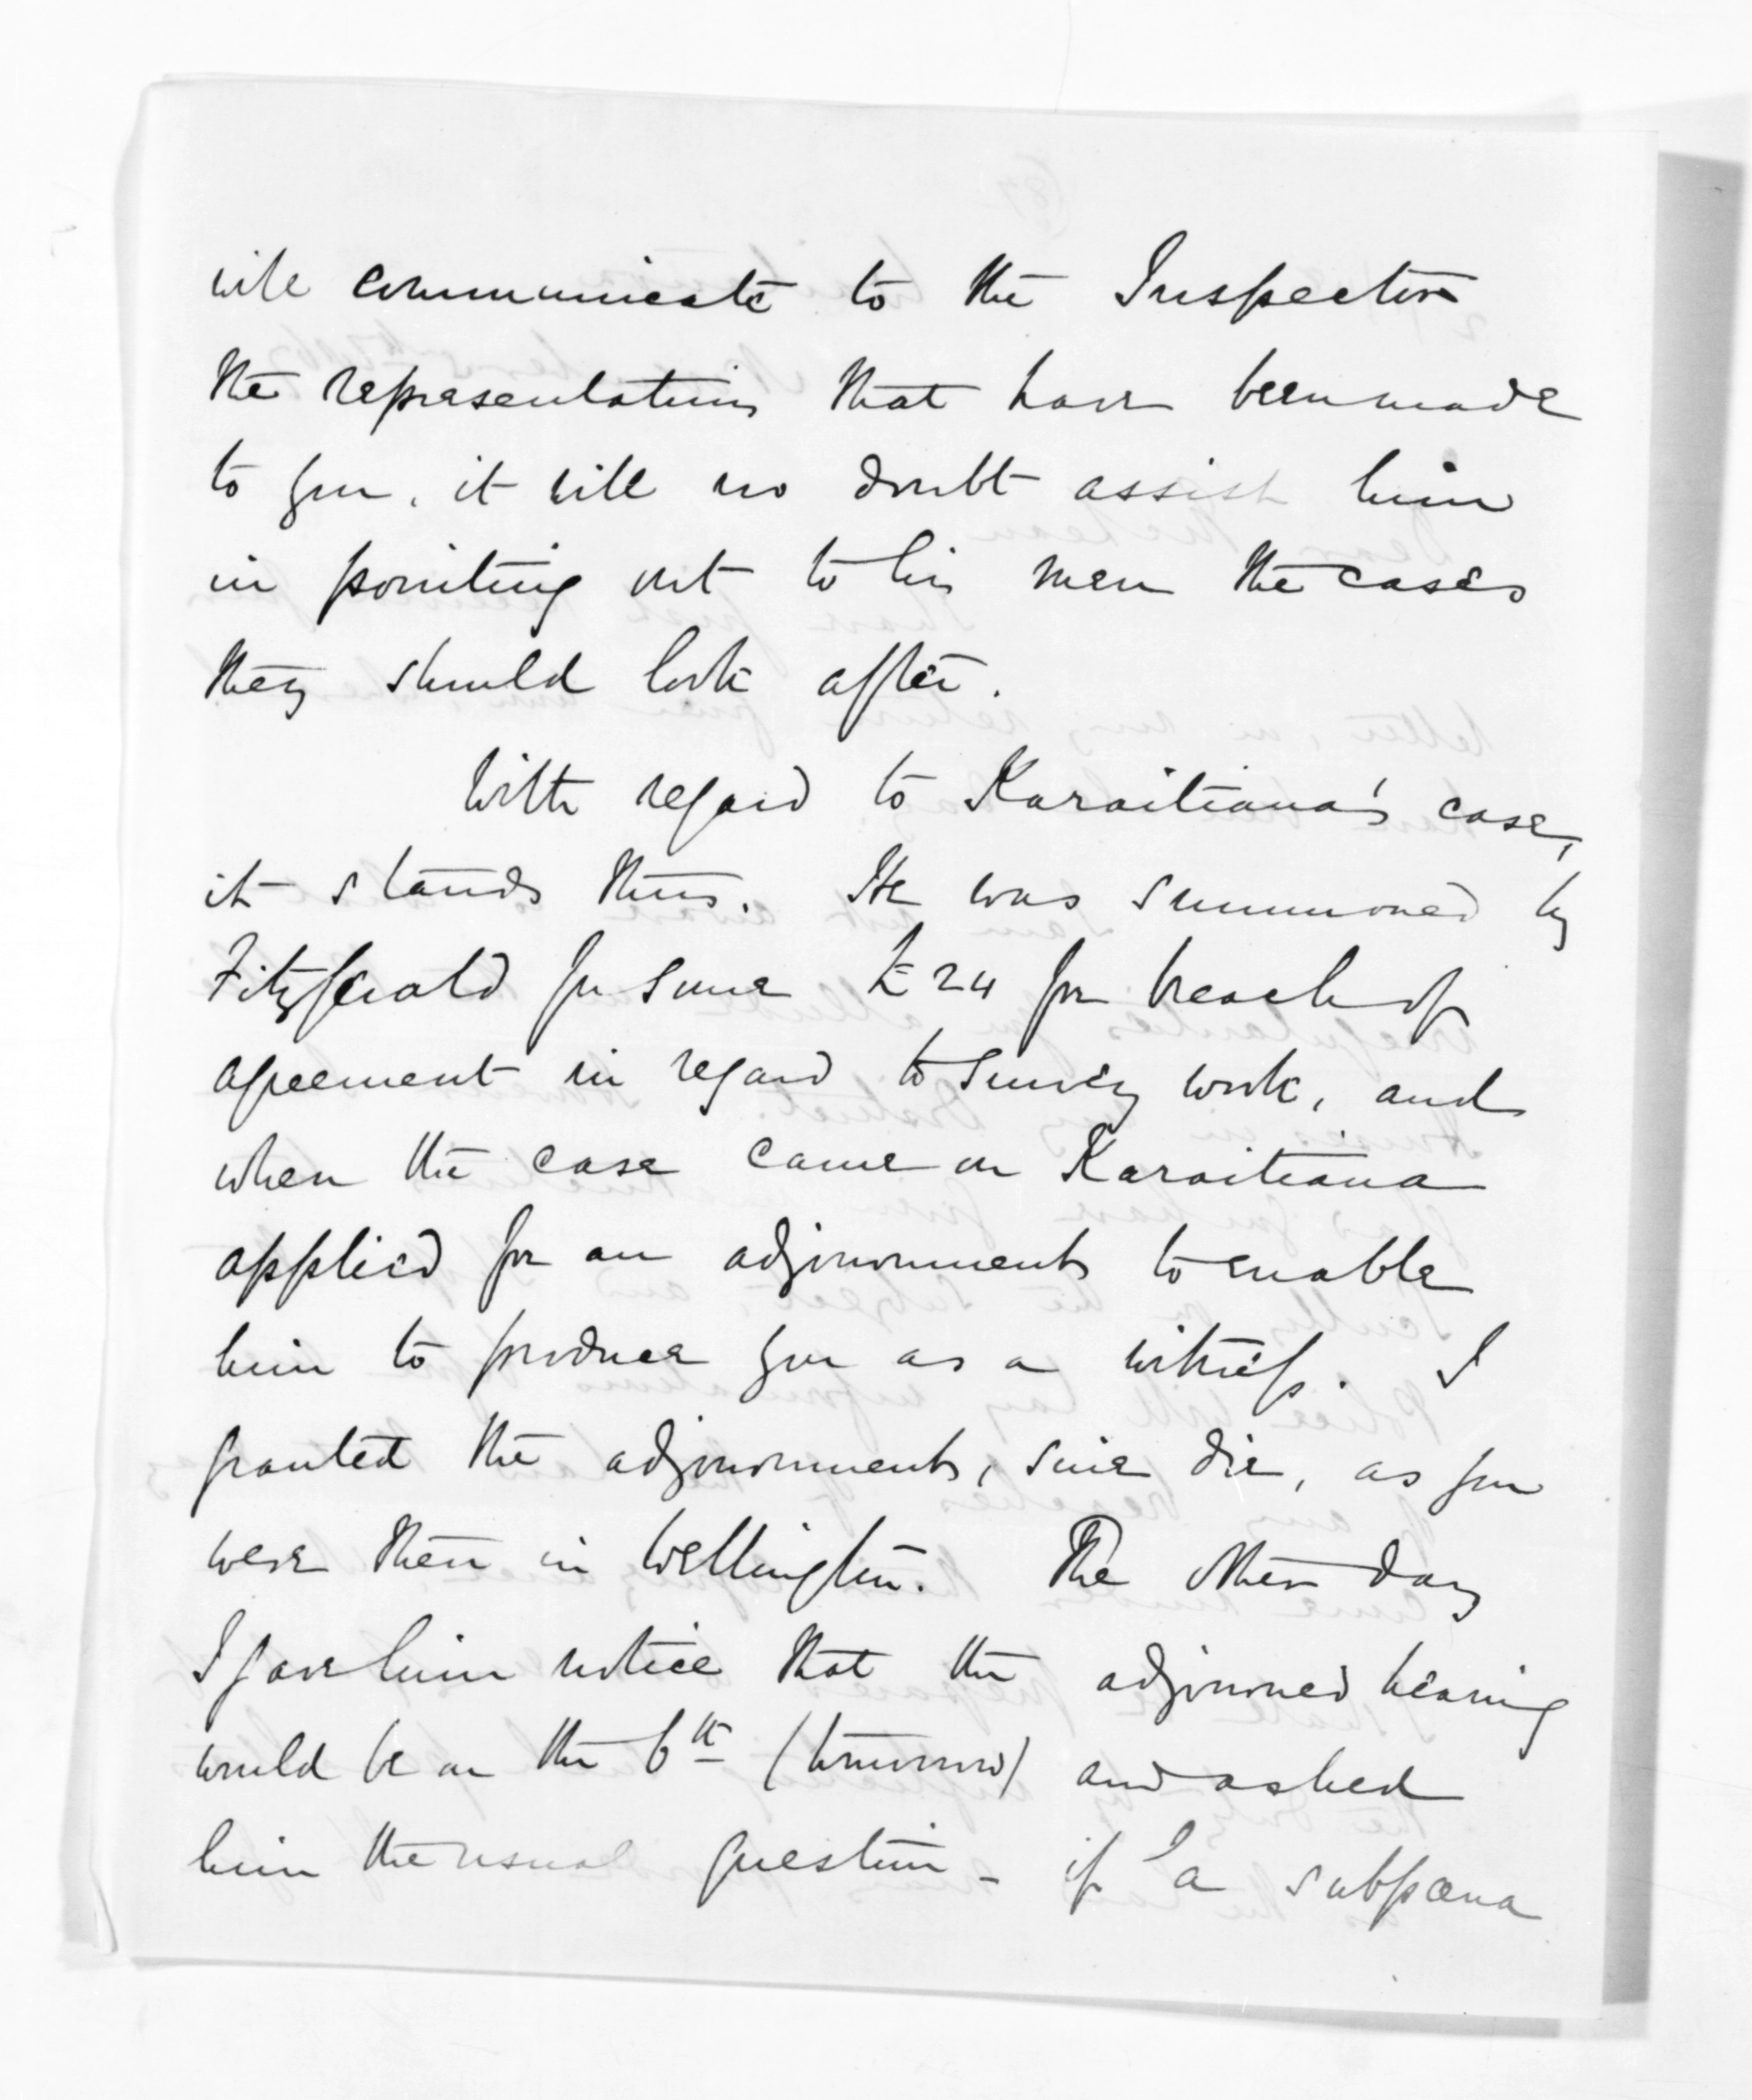 will communicate to the Inspector
the representations that have been made
to you, it will no doubt assist him
in pointing out to his men the cases
they should look after.
With regard to Karaitiana's case,
it stands thus. He was summoned by
Fitzgerald for some £24 for breach of
agreement in regard to survey work, and
when the case came on Karaitiana
applied for an adjournment to enable
him to produce you as a witness. I
granted the adjournment, sine die, as you
were then in Wellington. The other day
I gave him notice that the adjourned hearing
would be on the 6th (tomorrow) and asked
him the usual question - if a subpœna